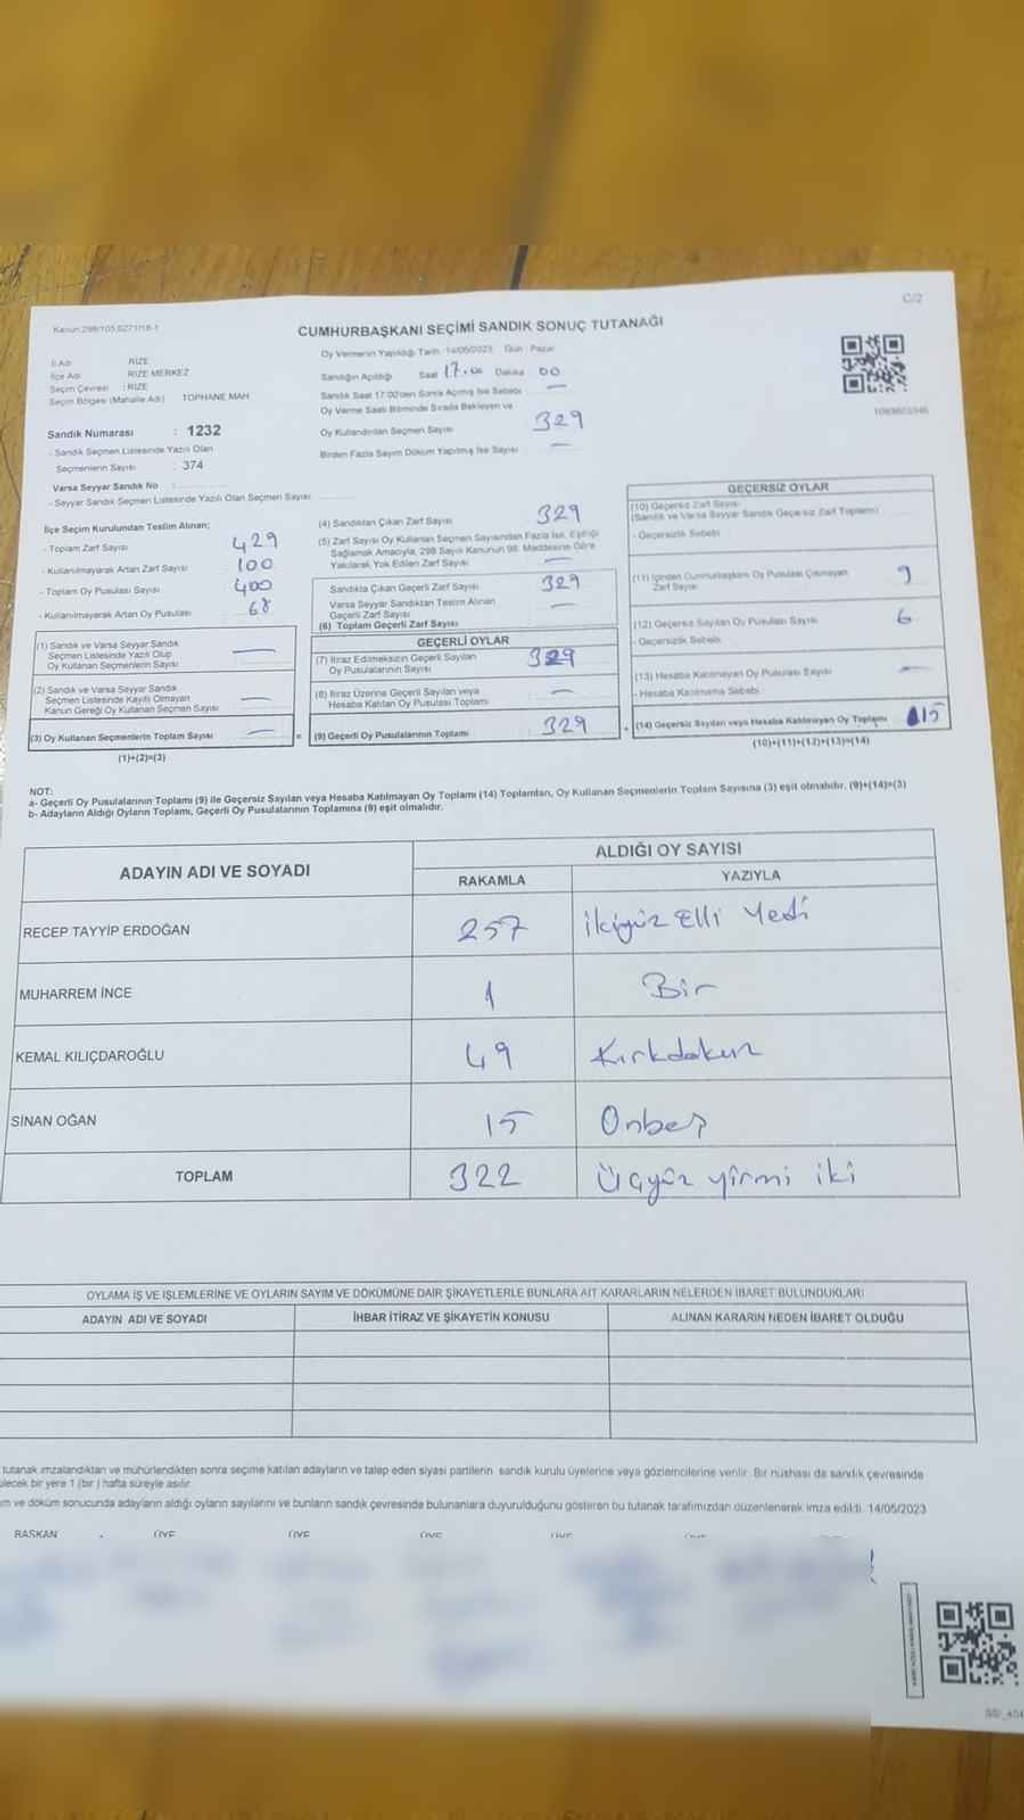 C/2
Kanun 298/105,6271/18-1
CUMHURBAŞKANI SEÇİMİ SANDIK SONUÇ TUTANAĞI
İl Adı : RİZE
İlçe Adı : RİZE MERKEZ
Seçim Çevresi : RİZE
Seçim Bölgesi (Mahalle Adı) TOPHANE MAH
Sandık Numarası : 1232
- Sandık Seçmen Listesinde Yazılı Olan
Seçmenlerin Sayısı : 374
Varsa Seyyar Sandık No :
- Seyyar Sandık Seçmen Listesinde Yazılı Olan Seçmen Sayısı
Oy Vermenin Yapıldığı Tarih :14/05/2023 Gün : Pazar
Sandığın Açıldığı Saat 17.00 Dakika 00
Sandık Saat 17:00'den Sonra Açılmış İse Sebebi —
Oy Verme Saati Bitiminde Sırada Bekleyen ve
Oy Kullandırılan Seçmen Sayısı 329
Birden Fazla Sayım Döküm Yapılmış İse Sayısı —
İlçe Seçim Kurulundan Teslim Alınan;
- Toplam Zarf Sayısı 429
- Kullanılmayarak Artan Zarf Sayısı 100
- Toplam Oy Pusulası Sayısı 400
- Kullanılmayarak Artan Oy Pusulası 68
(1) Sandık ve Varsa Seyyar Sandık
Seçmen Listesinde Yazılı Olup
Oy Kullanan Seçmenlerin Sayısı —
(2) Sandık ve Varsa Seyyar Sandık
Seçmen Listesinde Kayıtlı Olmayan
Kanun Gereği Oy Kullanan Seçmen Sayısı —
(3) Oy Kullanan Seçmenlerin Toplam Sayısı —
(1)+(2)=(3)
(4) Sandıktan Çıkan Zarf Sayısı 329
(5) Zarf Sayısı Oy Kullanan Seçmen Sayısından Fazla İse, Eşitliği
Sağlamak Amacıyla, 298 Sayılı Kanunun 98. Maddesine Göre
Yakılarak Yok Edilen Zarf Sayısı —
Sandıkta Çıkan Geçerli Zarf Sayısı 329
Varsa Seyyar Sandıktan Teslim Alınan
Geçerli Zarf Sayısı —
(6) Toplam Geçerli Zarf Sayısı
GEÇERLİ OYLAR
(7) İtiraz Edilmeksizin Geçerli Sayılan
Oy Pusulalarının Sayısı 329
(8) İtiraz Üzerine Geçerli Sayılan veya
Hesaba Katılan Oy Pusulası Toplamı —
(9) Geçerli Oy Pusulalarının Toplamı 329
GEÇERSİZ OYLAR
(10) Geçersiz Zarf Sayısı
(Sandık ve Varsa Seyyar Sandık Geçersiz Zarf Toplamı)
- Geçersizlik Sebebi
(11) İçinden Cumhurbaşkanı Oy Pusulası Çıkmayan
Zarf Sayısı 9
(12) Geçersiz Sayılan Oy Pusulası Sayısı 6
- Geçersizlik Sebebi
(13) Hesaba Katılmayan Oy Pusulası Sayısı —
- Hesaba Katılmama Sebebi
(14) Geçersiz Sayılan veya Hesaba Katılmayan Oy Toplamı 15
(10)+(11)+(12)+(13)=(14)
NOT:
a- Geçerli Oy Pusulalarının Toplamı (9) ile Geçersiz Sayılan veya Hesaba Katılmayan Oy Toplamı (14) Toplamları, Oy Kullanan Seçmenlerin Toplam Sayısına (3) eşit olmalıdır. (9)+(14)=(3)
b- Adayların Aldığı Oyların Toplamı, Geçerli Oy Pusulalarının Toplamına (9) eşit olmalıdır.
ADAYIN ADI VE SOYADI
ALDIĞI OY SAYISI
RAKAMLA YAZIYLA
RECEP TAYYİP ERDOĞAN 257 İkiyüz Elli Yedi
MUHARREM İNCE 1 Bir
KEMAL KILIÇDAROĞLU 49 Kırkdokuz
SİNAN OĞAN 15 Onbeş
TOPLAM 322 Üçyüz yirmi iki
OYLAMA İŞ VE İŞLEMLERİNE VE OYLARIN SAYIM VE DÖKÜMÜNE DAİR ŞİKAYETLERLE BUNLARA AİT KARARLARIN NELERDEN İBARET BULUNDUKLARI
ADAYIN ADI VE SOYADI İHBAR İTİRAZ VE ŞİKAYETİN KONUSU ALINAN KARARIN NEDEN İBARET OLDUĞU
tutanak imzalandıktan ve mühürlendikten sonra seçime katılan adayların ve talep eden siyasi partilerin sandık kurulu üyelerine veya gözlemcilerine verilir. Bir nüshası da sandık çevresinde
ülecek bir yere 1 (bir) hafta süreyle asılır.
ım ve döküm sonucunda adayların aldığı oyların sayılarını ve bunların sandık çevresinde bulunanlara duyurulduğunu gösteren bu tutanak tarafımızdan düzenlenerek imza edildi. 14/05/2023
BAŞKAN ÜYE ÜYE ÜYE ÜYE